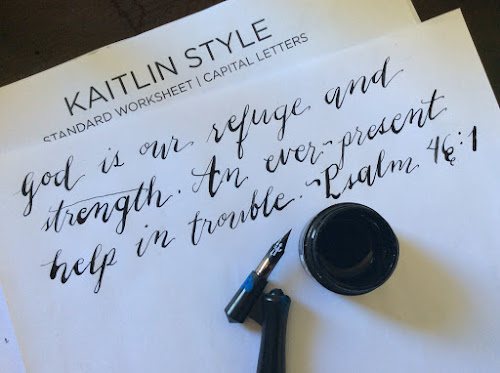 KAITLIN STYLE
STANDARD WORKSHEET | CAPITAL LETTERS
God is our refuge and
strength. An ever-present
help in trouble. ~Psalm 46:1